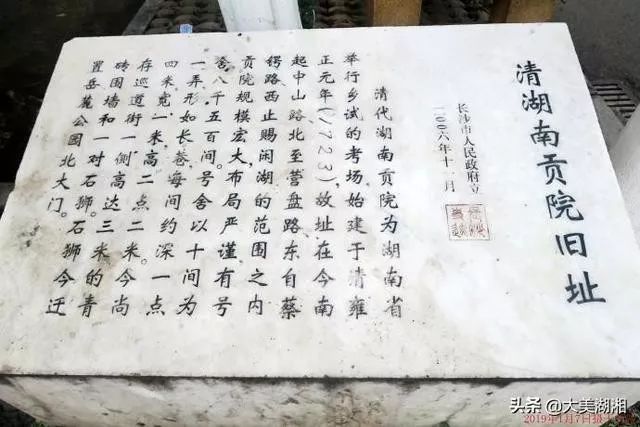 清湖南贡院旧址
长沙市人民政府立
二00六年十一月
清代湖南贡院为湖南省
举行乡试的考场,始建于清雍
正元年(1723),故址在今南
起中山路北至营盘路东自蔡
锷路西止赐闲湖的范围之内
贡院规模宏大,布局严谨有号
舍八千五百间。号舍以十间为
一弄,形如长巷,每间约深一点
四米,宽一米,高二点二米。今尚
存巡道街一侧高达三米的青
砖围墙和一对石狮。石狮今迁
置岳麓公园北大门。
头条 @大美湖湘
2019年1月7日摄